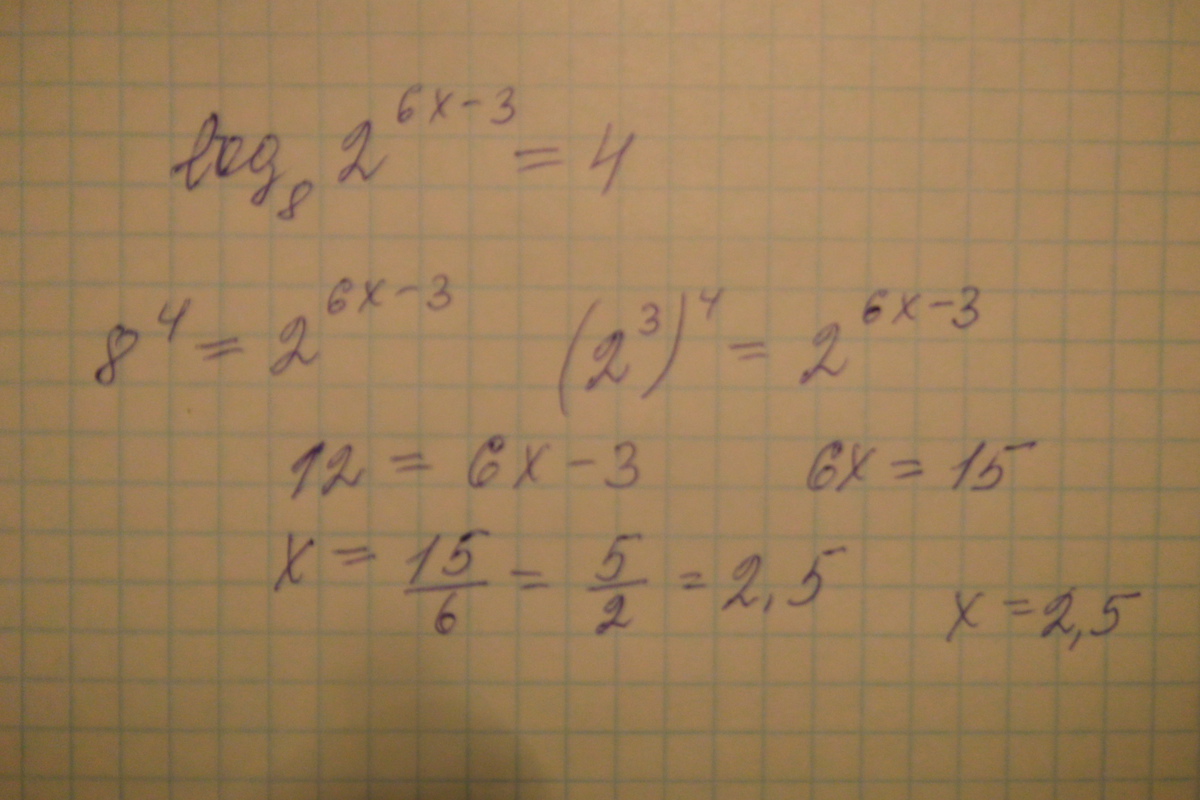 log₈ 2^(6x-3) = 4
8⁴ = 2^(6x-3) (2³)⁴ = 2^(6x-3)
12 = 6x - 3 6x = 15
x = 15/6 = 5/2 = 2,5 x = 2,5